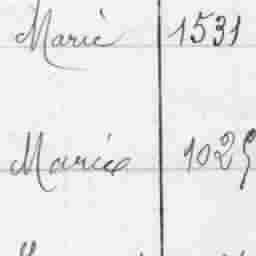 Marié 1531
Mariée 1025